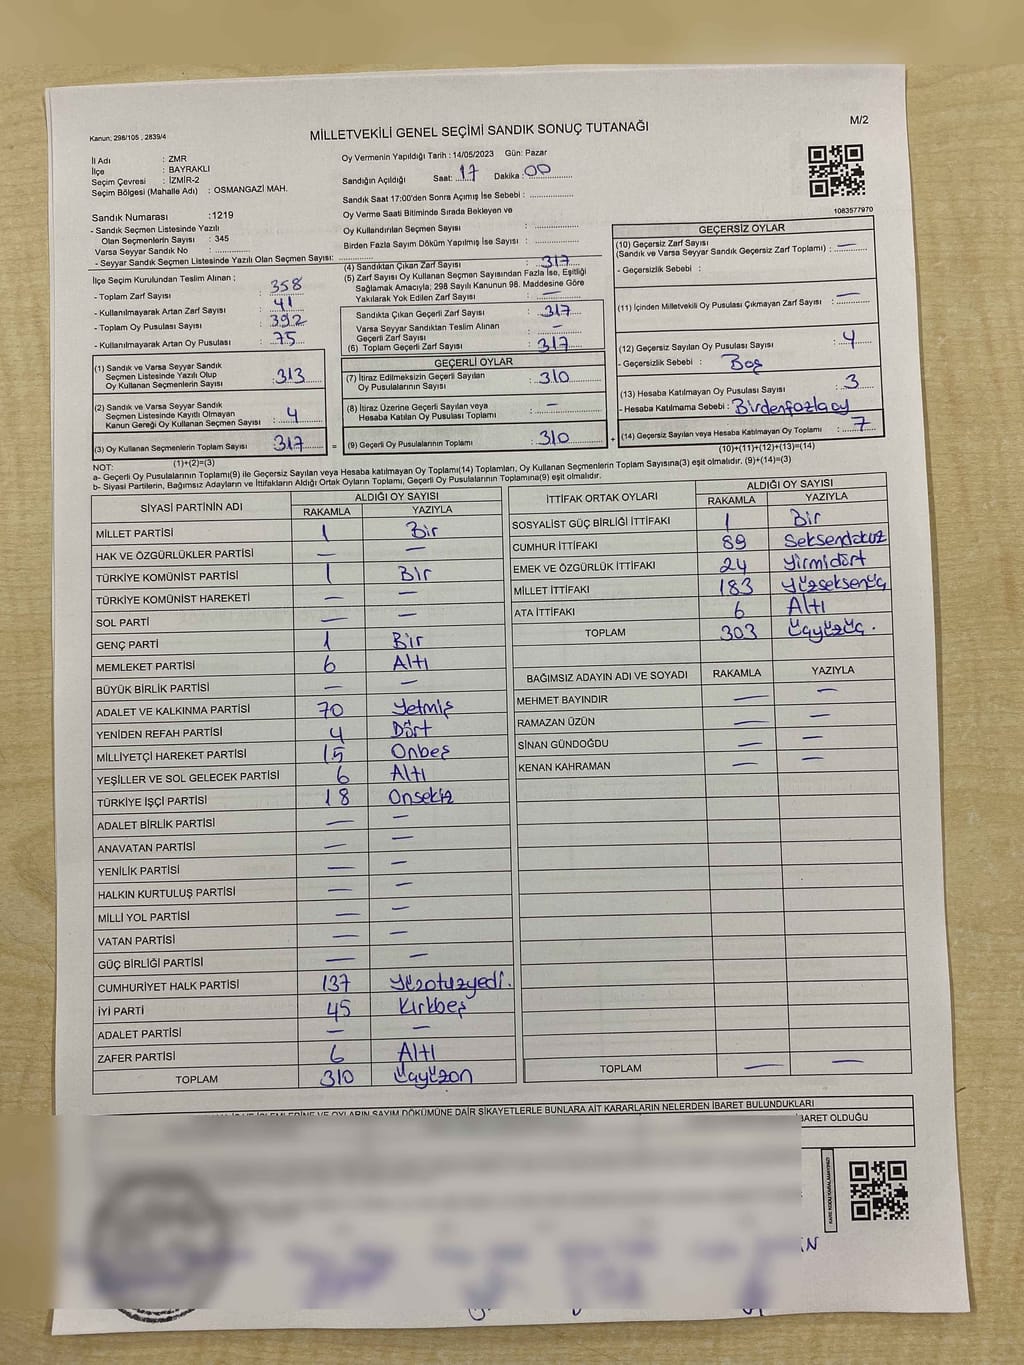 Kanun; 298/105 , 2839/4
MİLLETVEKİLİ GENEL SEÇİMİ SANDIK SONUÇ TUTANAĞI
M/2
İl Adı : ZMR
İlçe : BAYRAKLI
Seçim Çevresi : İZMİR-2
Seçim Bölgesi (Mahalle Adı) : OSMANGAZİ MAH.
Oy Vermenin Yapıldığı Tarih : 14/05/2023 Gün: Pazar
Sandığın Açıldığı Saat: 17 Dakika : 00
Sandık Saat 17:00'den Sonra Açımış İse Sebebi :
Oy Verme Saati Bitiminde Sırada Bekleyen ve
Oy Kullandırılan Seçmen Sayısı :
Birden Fazla Sayım Döküm Yapılmış İse Sayısı :
1083577970
Sandık Numarası : 1219
- Sandık Seçmen Listesinde Yazılı
Olan Seçmenlerin Sayısı : 345
Varsa Seyyar Sandık No :
- Seyyar Sandık Seçmen Listesinde Yazılı Olan Seçmen Sayısı:
İlçe Seçim Kurulundan Teslim Alınan ;
- Toplam Zarf Sayısı : 358
- Kullanılmayarak Artan Zarf Sayısı : 41
- Toplam Oy Pusulası Sayısı : 392
- Kullanılmayarak Artan Oy Pusulası : 75
(1) Sandık ve Varsa Seyyar Sandık
Seçmen Listesinde Yazılı Olup
Oy Kullanan Seçmenlerin Sayısı : 313
(2) Sandık ve Varsa Seyyar Sandık
Seçmen Listesinde Kayıtlı Olmayan
Kanun Gereği Oy Kullanan Seçmen Sayısı : 4
(3) Oy Kullanan Seçmenlerin Toplam Sayısı : 317 =
(1)+(2)=(3)
(4) Sandıktan Çıkan Zarf Sayısı : 317
(5) Zarf Sayısı Oy Kullanan Seçmen Sayısından Fazla İse, Eşitliği
Sağlamak Amacıyla; 298 Sayılı Kanunun 98. Maddesine Göre
Yakılarak Yok Edilen Zarf Sayısı : —
Sandıkta Çıkan Geçerli Zarf Sayısı : 317
Varsa Seyyar Sandıktan Teslim Alınan
Geçerli Zarf Sayısı : —
(6) Toplam Geçerli Zarf Sayısı : 317
GEÇERLİ OYLAR
(7) İtiraz Edilmeksizin Geçerli Sayılan
Oy Pusulalarının Sayısı : 310
(8) İtiraz Üzerine Geçerli Sayılan veya
Hesaba Katılan Oy Pusulası Toplamı : —
(9) Geçerli Oy Pusulalarının Toplamı : 310 +
GEÇERSİZ OYLAR
(10) Geçersiz Zarf Sayısı
(Sandık ve Varsa Seyyar Sandık Geçersiz Zarf Toplamı) : —
- Geçersizlik Sebebi :
(11) İçinden Milletvekili Oy Pusulası Çıkmayan Zarf Sayısı : —
(12) Geçersiz Sayılan Oy Pusulası Sayısı : 4
- Geçersizlik Sebebi : Boş
(13) Hesaba Katılmayan Oy Pusulası Sayısı : 3
- Hesaba Katılmama Sebebi : Birdenfazla oy
(14) Geçersiz Sayılan veya Hesaba Katılmayan Oy Toplamı : 7
(10)+(11)+(12)+(13)=(14)
NOT:
a- Geçerli Oy Pusulalarının Toplamı(9) ile Geçersiz Sayılan veya Hesaba katılmayan Oy Toplamı(14) Toplamları, Oy Kullanan Seçmenlerin Toplam Sayısına(3) eşit olmalıdır. (9)+(14)=(3)
b- Siyasi Partilerin, Bağımsız Adayların ve İttifakların Aldığı Ortak Oyların Toplamı, Geçerli Oy Pusulalarının Toplamına(9) eşit olmalıdır.
SİYASİ PARTİNİN ADI ALDIĞI OY SAYISI
RAKAMLA YAZIYLA
MİLLET PARTİSİ 1 Bir
HAK VE ÖZGÜRLÜKLER PARTİSİ — —
TÜRKİYE KOMÜNİST PARTİSİ 1 Bir
TÜRKİYE KOMÜNİST HAREKETİ — —
SOL PARTİ — —
GENÇ PARTİ 1 Bir
MEMLEKET PARTİSİ 6 Altı
BÜYÜK BİRLİK PARTİSİ — —
ADALET VE KALKINMA PARTİSİ 70 Yetmiş
YENİDEN REFAH PARTİSİ 4 Dört
MİLLİYETÇİ HAREKET PARTİSİ 15 Onbeş
YEŞİLLER VE SOL GELECEK PARTİSİ 6 Altı
TÜRKİYE İŞÇİ PARTİSİ 18 Onsekiz
ADALET BİRLİK PARTİSİ — —
ANAVATAN PARTİSİ — —
YENİLİK PARTİSİ — —
HALKIN KURTULUŞ PARTİSİ — —
MİLLİ YOL PARTİSİ — —
VATAN PARTİSİ — —
GÜÇ BİRLİĞİ PARTİSİ — —
CUMHURİYET HALK PARTİSİ 137 Yüzotuzyedi.
İYİ PARTİ 45 Kırkbeş
ADALET PARTİSİ — —
ZAFER PARTİSİ 6 Altı
TOPLAM 310 Üçyüzon
İTTİFAK ORTAK OYLARI ALDIĞI OY SAYISI
RAKAMLA YAZIYLA
SOSYALİST GÜÇ BİRLİĞİ İTTİFAKI 1 Bir
CUMHUR İTTİFAKI 89 Seksendokuz
EMEK VE ÖZGÜRLÜK İTTİFAKI 24 Yirmidört
MİLLET İTTİFAKI 183 Yüzseksenüç
ATA İTTİFAKI 6 Altı
TOPLAM 303 Üçyüzüç.
BAĞIMSIZ ADAYIN ADI VE SOYADI RAKAMLA YAZIYLA
MEHMET BAYINDIR — —
RAMAZAN ÜZÜN — —
SİNAN GÜNDOĞDU — —
KENAN KAHRAMAN — —
TOPLAM — —
VE OYLARIN SAYIM DÖKÜMÜNE DAİR ŞİKAYETLERLE BUNLARA AİT KARARLARIN NELERDEN İBARET BULUNDUKLARI
BARET OLDUĞU